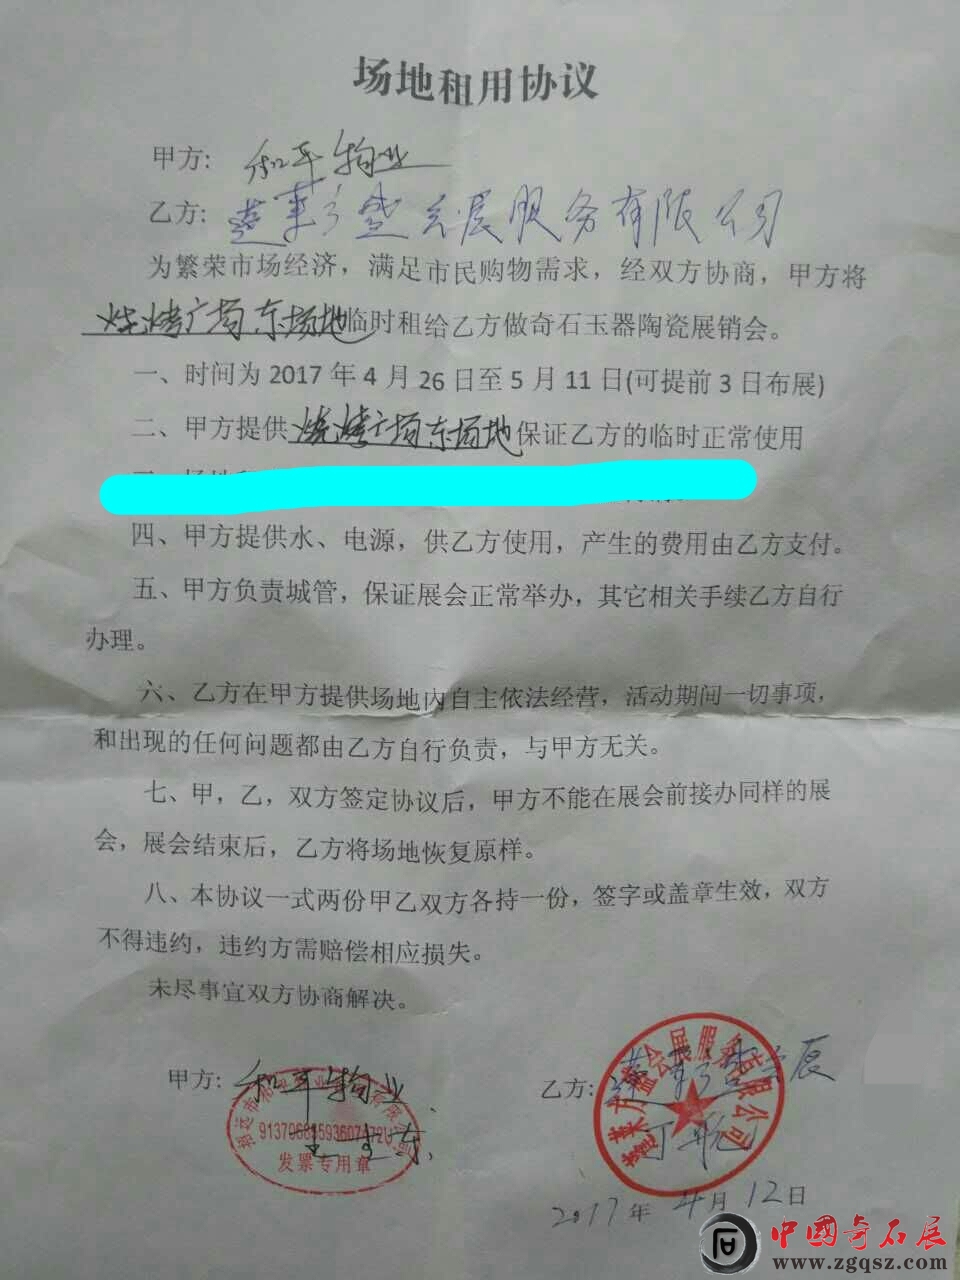 场地租用协议
甲方: 和平物业
乙方: 蓬莱方盛会展服务有限公司
为繁荣市场经济，满足市民购物需求，经双方协商，甲方将
烧烤广场东场地临时租给乙方做奇石玉器陶瓷展销会。
一、时间为 2017 年 4 月 26 日至 5 月 11 日(可提前 3 日布展)
二、甲方提供烧烤广场东场地保证乙方的临时正常使用
四、甲方提供水、电源，供乙方使用，产生的费用由乙方支付。
五、甲方负责城管，保证展会正常举办，其它相关手续乙方自行
办理。
六、乙方在甲方提供场地内自主依法经营，活动期间一切事项，
和出现的任何问题都由乙方自行负责，与甲方无关。
七、甲，乙，双方签定协议后，甲方不能在展会前接办同样的展
会，展会结束后，乙方将场地恢复原样。
八、本协议一式两份甲乙双方各持一份，签字或盖章生效，双方
不得违约，违约方需赔偿相应损失。
未尽事宜双方协商解决。
甲方: 和平物业
发票专用章
乙方: 蓬莱方盛会展
蓬莱方盛会展服务有限公司
2017 年 4 月 12 日
中國奇石展
www.zgqsz.com